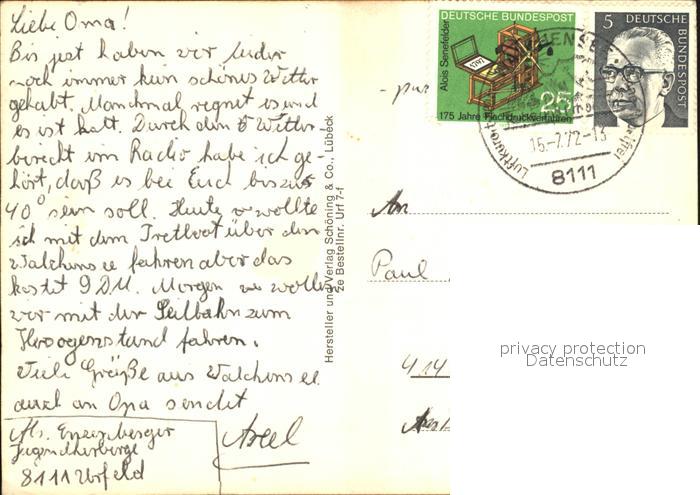 Liebe Oma!
Bis jest haben wir leider
noch immer kein schönes Wetter
gehabt. Manchmal regnet es und
es ist kalt. Durch den Wetter-
bericht im Radio habe ich ge-
hört, daß es bei Euch bis zu
40° sein soll. Heute wollte
ich mit dem Tretboot über den
Walchensee fahren aber das
kostet 9 DM. Morgen wollen
wir mit der Seilbahn zum
Herzogenstand fahren.
Viele Grüße aus Walchensee
auch an Opa sendet
Axel
Jugendherberge
8111 Urfeld
Hersteller und Verlag Schöning & Co., Lübeck
Bestellnr. Urf 7-f
DEUTSCHE BUNDESPOST
Alois Senefelder
1797
25
175 Jahre Flachdruckverfahren
5 DEUTSCHE
BUNDESPOST
15.-7.72-13
8111
An
Paul
414
privacy protection
Datenschutz